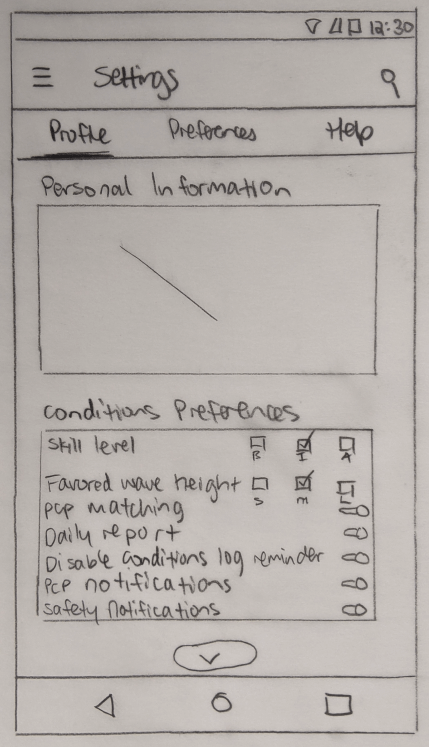 12:30
Settings
Profile Preferences Help
Personal Information
Conditions Preferences
Skill level
B I A
Favored wave height
S M L
PCP matching
Daily report
Disable conditions log reminder
PCP notifications
Safety notifications